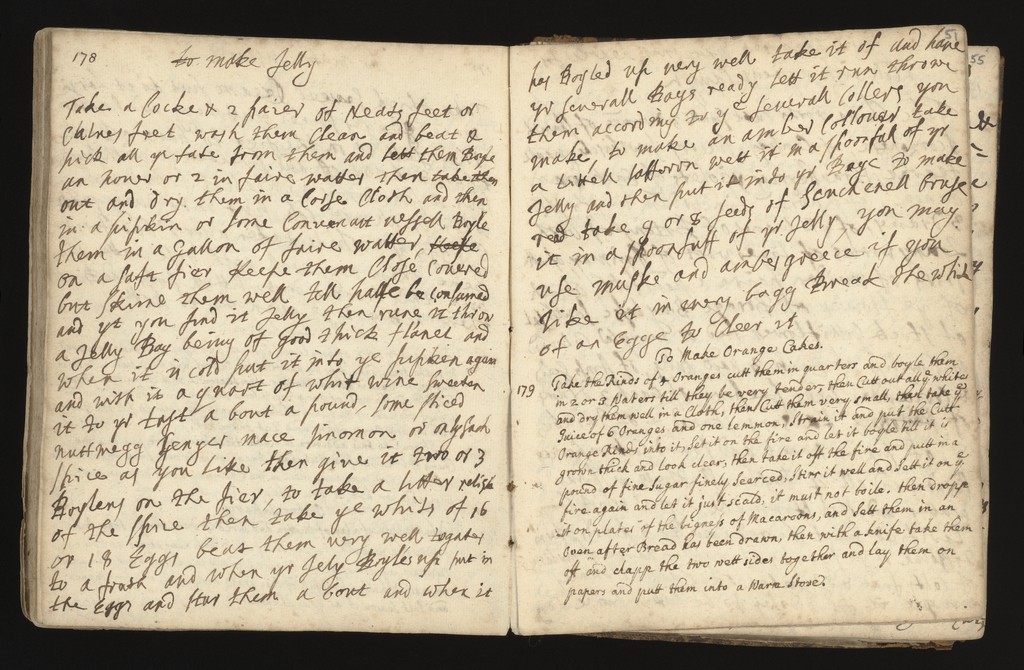 178 to make Jelly
Take a Cocke & 2 paier of Neats feet or
Calves feet wash them Clean and beat &
pick all ye fate from them and lett them Boyle
an houer or 2 in faire watter then take them
out and dry them in a Corse Cloth and then
in a pipkin or some Convenant vessell Boyle
them in a Gallon of faire watter, keepe
on a saft fier keepe them Close Covered
but skime them well tell halfe be consumed
and yt you find it Jelly then rune it throw
a Jelly Bag being of good thick flanel and
when it is cold put it into ye pipkien again
and with it a quart of whit wine sweeten
it to yr tast a bout a pound, some sliced
nuttmegg Genger mace sinomon or only such
spice as you like then give it two or 3
Boylens on the fier, to take a litter relish
of the spice then take ye whits of 16
or 18 Eggs beat them very well togater
to a froth and when yr Jely Boyles up put in
the Eggs and stur them a bout and when it
51
55
has Boyled up very well take it of and have
yr severall Bags ready lett it run throw
them according to ye severall Collers you
make, to make an amber Collouer take
a littell safforon wett it in a spoonfull of yr
Jelly and then put it into yr Bage to make
red take 7 or 8 seeds of Couchenell bruse
it in a spoonfull of yr Jelly you may
use muske and ambergreece if you
like it in every bagg Break the white
of an Egge to Cleer it
To Make Orange Cakes.
179 Take the Rinds of 4 Oranges cutt them in quarters and boyle them
in 2 or 3 Waters till they be very tender, then Cutt out all ye white
and dry them well in a Cloth, then Cutt them very small, then take ye
Juice of 6 Oranges and one Lemmon, Strain it and put the Cutt
Orange Rinds into it, Set it on the fire and let it boyle till it is
grown thick and look clear, then take it off the fire and putt in a
pound of fine Sugar finely Searced, Stirr it well and Sett it on ye
fire again and let it just scald, it must not boile. then dropp
it on plates of the bigness of Macaroons, and Sett them in an
Oven after Bread has been drawn, then with a knife take them
off and clapp the two wett sides together and lay them on
papers and putt them into a Warm Stove.